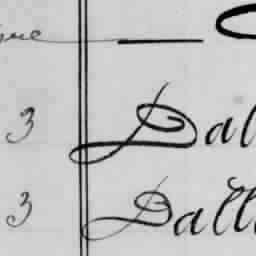 3 Dal
3 Dall